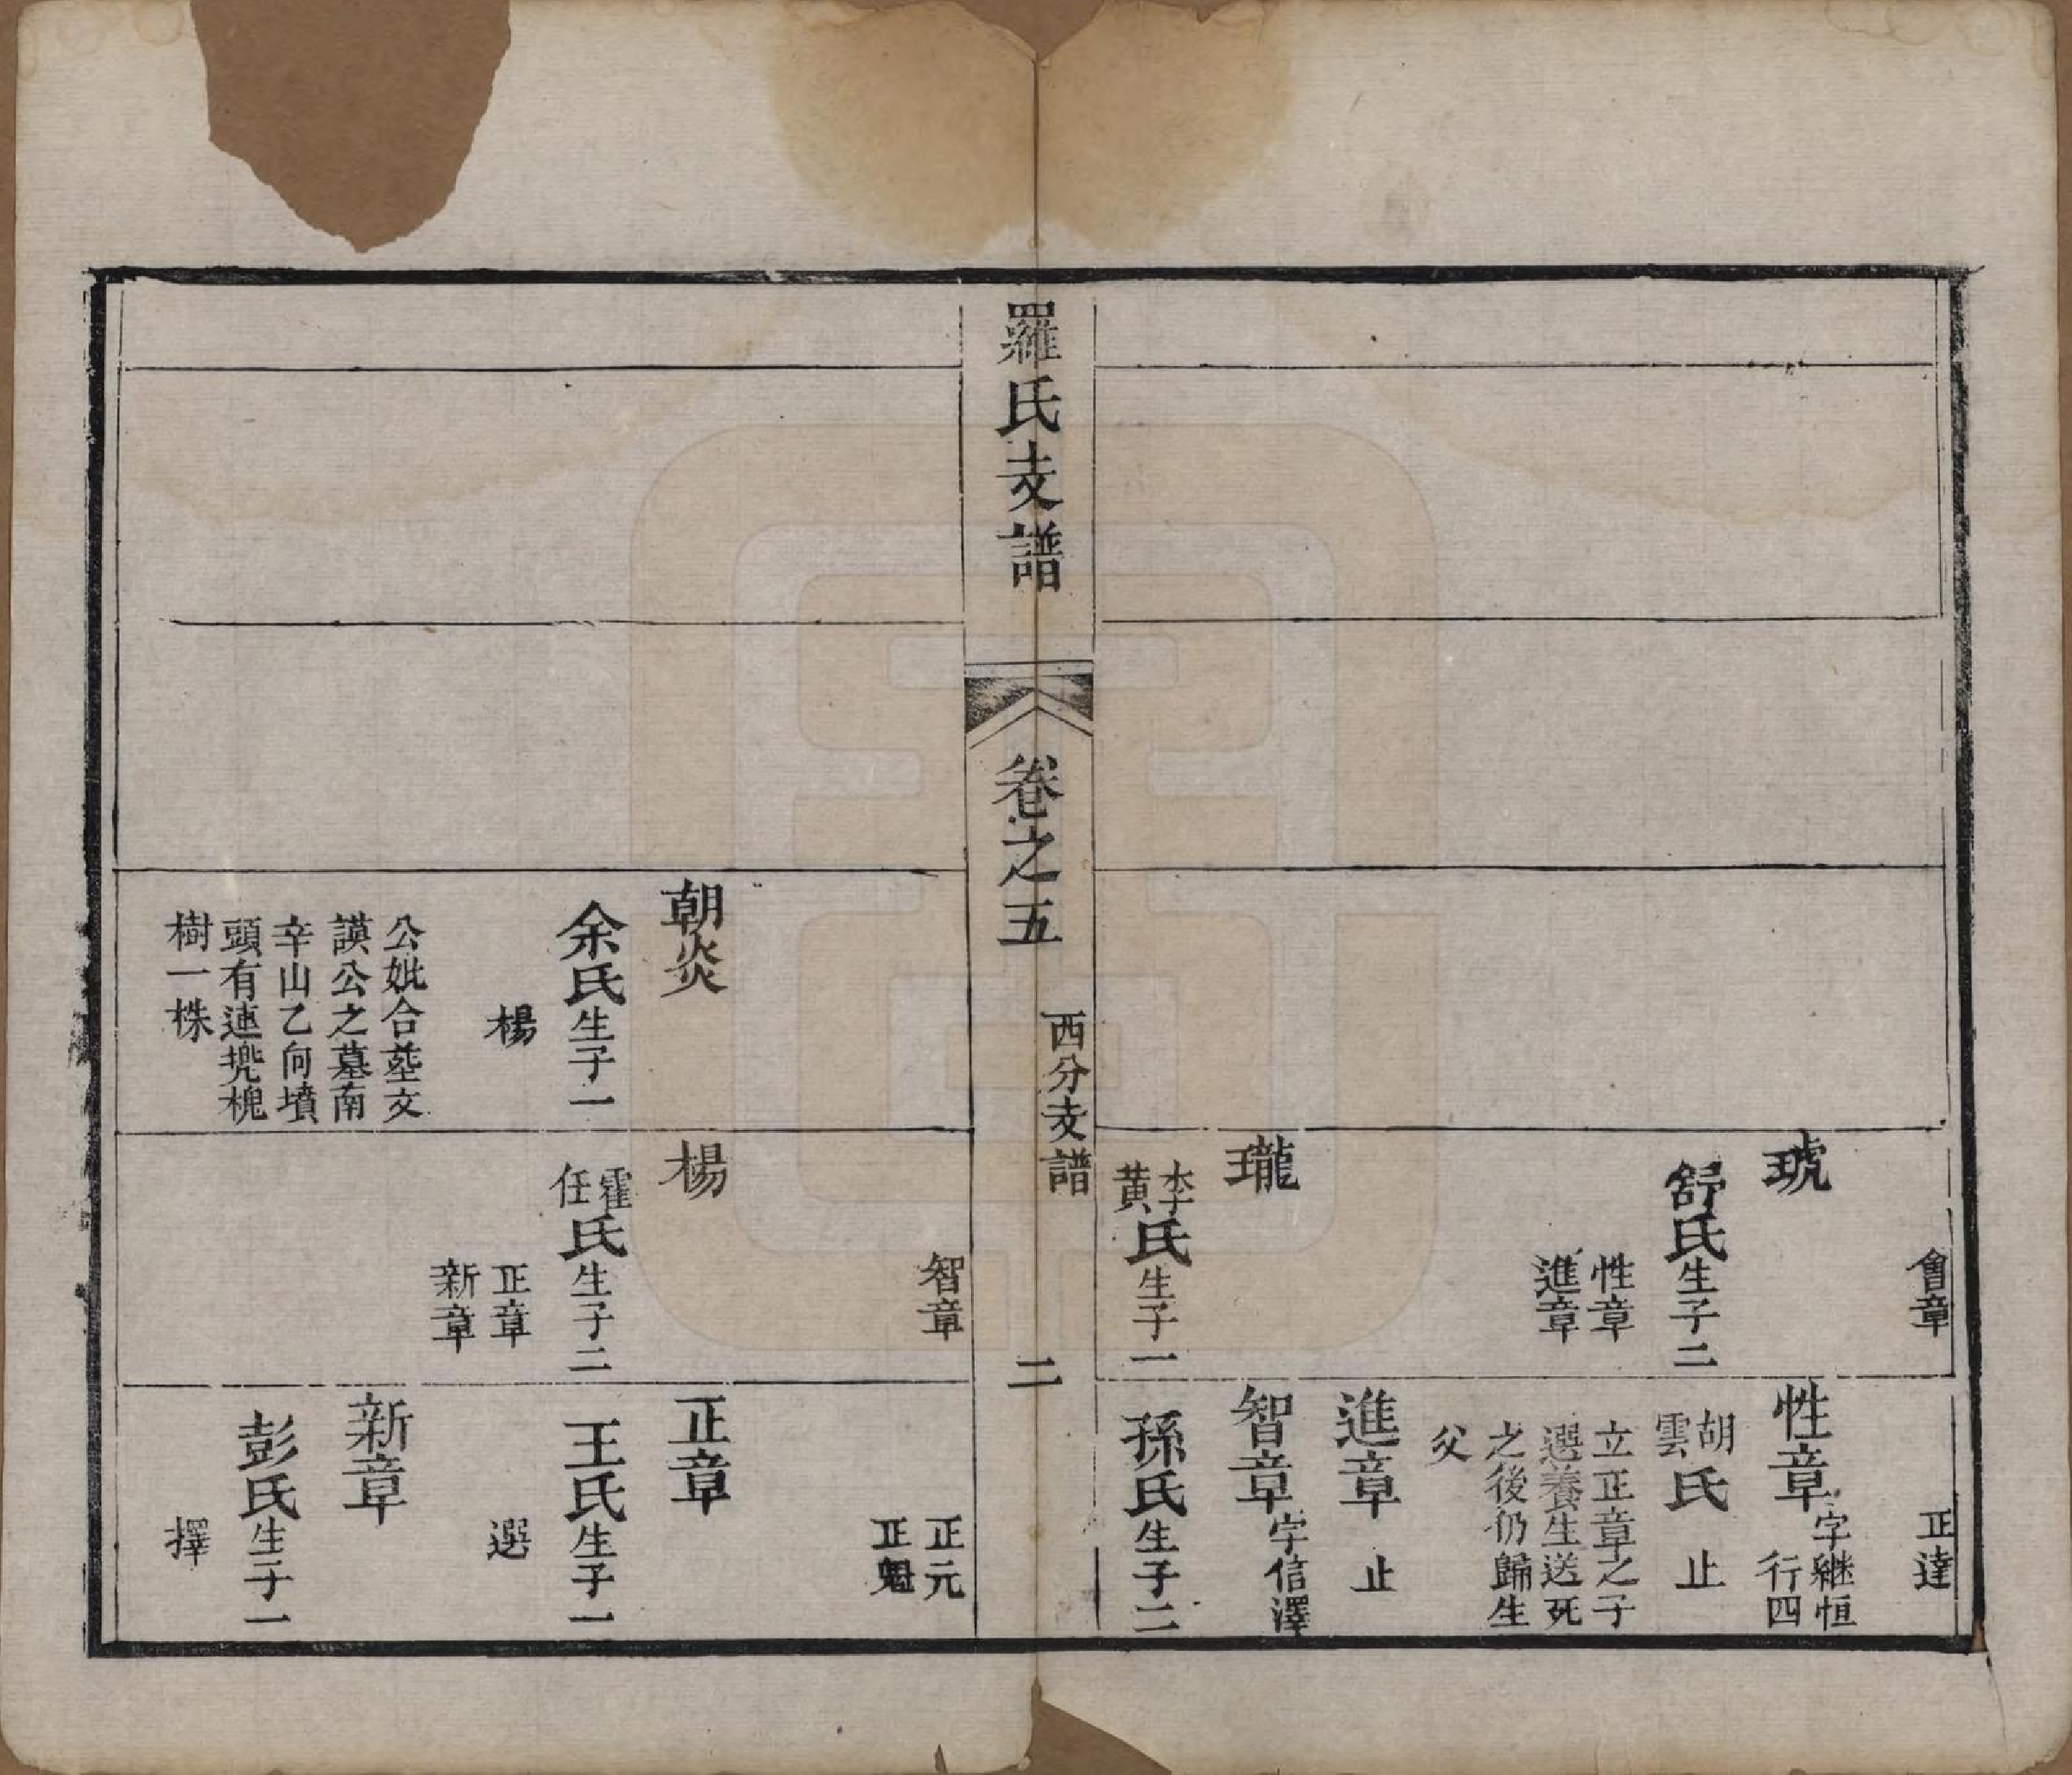 會章
琥
舒氏生子二
性章
進章
瓏
李黃氏生子一
正達
性章字繼恒行四
胡雲氏止
立正章之子
選養生送死
之後仍歸生
父
進章止
智章字信澤
孫氏生子二
羅氏支譜
卷之五
西分支譜
二
朝炎
余氏生子一
楊
公妣合塟文
謨公之墓南
辛山乙向墳
頭有連兠槐
樹一株
智章
楊
霍任氏生子二
正章
新章
正元
正魁
正章
王氏生子一
選
新章
彭氏生子一
擇